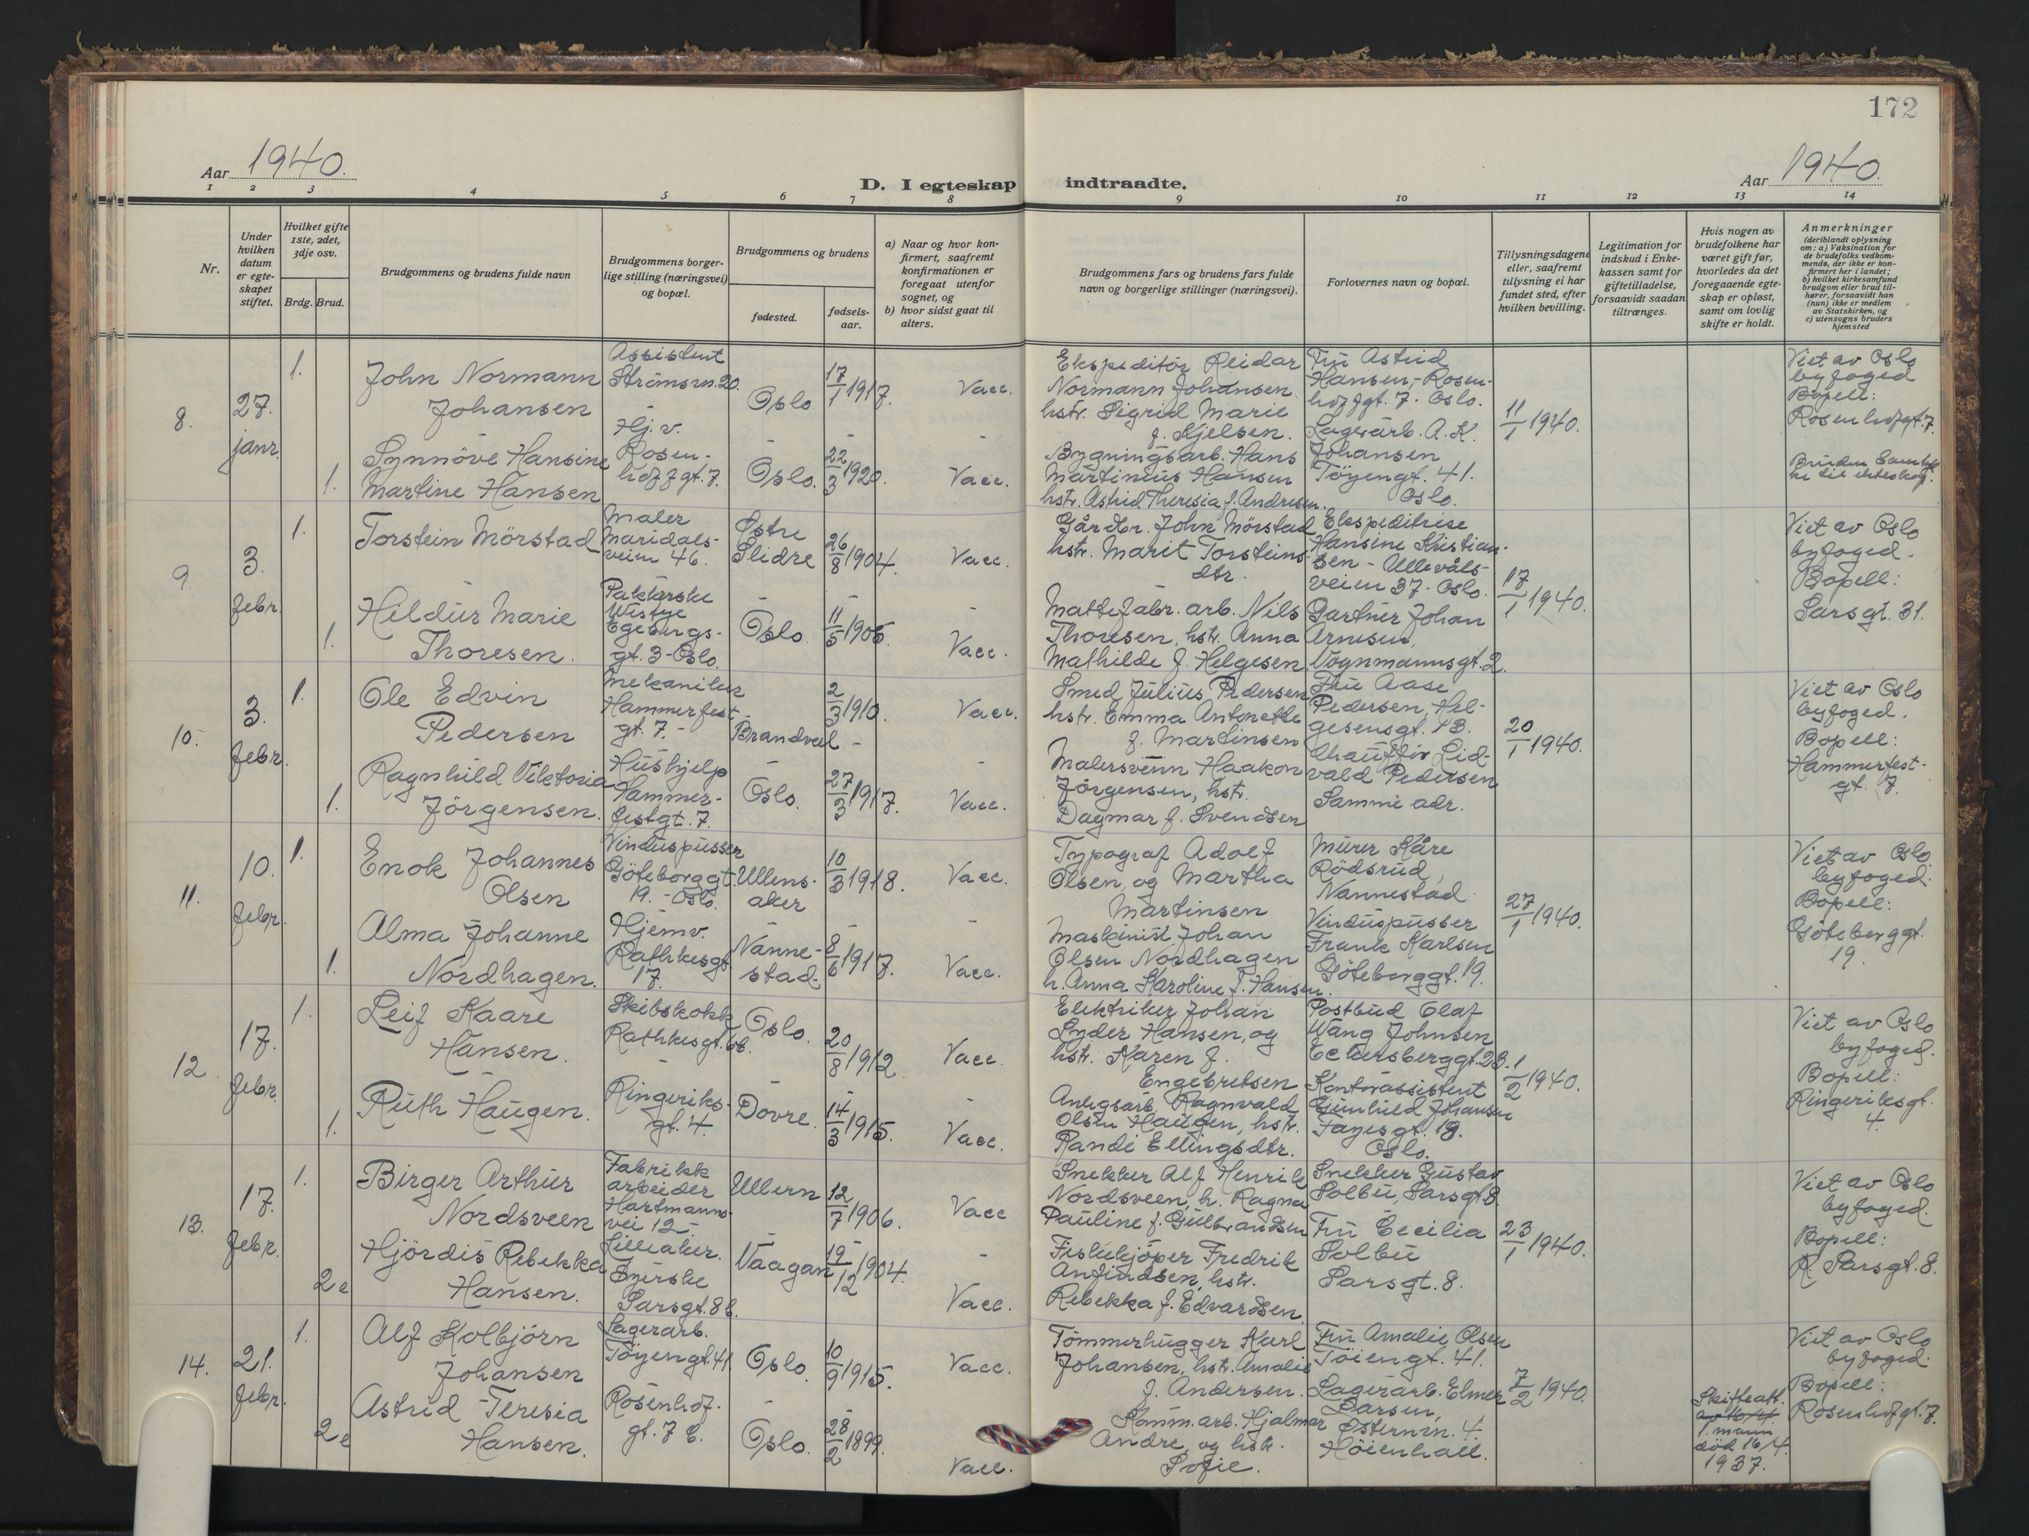 172
Aar 1940.
D. I egteskap indtraadte.
Aar 1940.
1 2 3 4 5 6 7 8 9 10 11 12 13 14
Nr.
Under hvilken datum er egte-skapet stiftet.
Hvilket gifte 1ste, 2det, 3dje osv.
Brdg. Brud.
Brudgommens og brudens fulde navn
Brudgommens borger-lige stilling (næringsvei) og bopæl.
Brudgommens og brudens
fødested.
fødsels-aar.
a) Naar og hvor kon-firmert, saafremt konfirmationen er foregaat utenfor sognet, og
b) hvor sidst gaat til alters.
Brudgommens fars og brudens fars fulde navn og borgerlige stillinger (næringsvei).
Forlovernes navn og bopæl.
Tillysningsdagene eller, saafremt tillysning ei har fundet sted, efter hvilken bevilling.
Legitimation for indskud i Enke-kassen samt for giftetilladelse, forsaavidt saadan tiltrænges.
Hvis nogen av brudefolkene har været gift før, hvorledes da det foregaaende egte-skap er opløst, samt om lovlig skifte er holdt.
Anmerkninger
(deriblandt oplysning om: a) Vaksination for de brudefolks vedkom-mende, der ikke er kon-firmert her i landet; b) hvilket kirkesamfund brudgom eller brud til-hører, forsaavidt han (hun) ikke er medlem av Statskirken, og c) utensogns bruders hjemsted
8.
27. janr.
1.
John Normann Johansen
Assistent Strömsvn. 20.
Oslo
17/1 1917.
Vacc.
Ekspeditör Reidar Normann Johansen hstr. Sigrid Marie f. Kjelsen.
Fru Astrid Hansen,- Rosen-hofgt. 7. Oslo.
11/1 1940.
Viet av Oslo byfoged
Bopell: Rosenhofgt. 7.
1.
Synnöve Hansine Martine Hansen
Hj. v. Rosen-hofgt. 7.
Oslo.
22/3 1920.
Vacc.
Bygningsarb. Hans Martinius Hansen hstr. Astrid Theresia f. Andresen.
Lagerarb. A. K. Johansen Töyengt. 41. Oslo.
9.
3. febr.
1.
Torstein Mörstad
Maler Maridals-veien 46.
Östre Slidre
26/8 1904.
Vacc.
Gårdbr. John Mörstad hstr. Marit Torsteins-dtr.
Ekspeditrise Hansine Kristian-sen - Ullevåls-veien 37. Oslo.
17/1 1940.
Viet av Oslo byfoged.
Bopell: Sarsgt. 31.
1.
Hildur Marie Thoresen.
Egebergs-gt. 3 - Oslo.
Oslo.
11/5 1905.
Vacc.
Mattefabr. arb. Nils Thoresen, hstr. Anna Mathilde f. Helgesen
Gartner Johan Arnesen, Vognmannsgt. 2.
10.
3. febr.
1.
Ole Edvin Pedersen
Mekaniker Hammerfest-gt. 7. -
Brandval
2/3 1910.
Vacc.
Smed Julius Pedersen hstr. Emma Antonette f. Martinsen
Fru Aase Pedersen, Hel-gesensgt. 13.
20/1 1940.
Viet av Oslo byfoged.
Bopell: Hammerfest-gt. 7.
1.
Ragnhild Viktoria Jörgensen.
Hushjelp Hammer-festgt. 7.
Oslo.
27/3 1917.
Vacc.
Malersvenn Haakon Jörgensen, hstr. Dagmar f. Svendsen
Chaufför Lid-vald Pedersen Samme adr.
11.
10. febr.
1.
Enok Johannes Olsen
Vinduspusser Göteborggt. 19. - Oslo.
Ullens-aker
10/3 1918.
Vacc.
Typograf Adolf Olsen, og Martha Martinsen
Murer Kåre Rödsrud, Nannestad
27/1 1940.
Viet av Oslo byfoged.
Bopell: Göteborggt. 19.
1.
Alma Johanne Nordhagen.
Hjemv. Rathkesgt. 17.
Nanne-stad.
8/6 1917.
Vacc.
Maskinist Johan Olsen Nordhagen h. Anna Karoline f. Hansen.
Vinduspusser Frank Karlsen Göteborggt. 19.
12.
17. febr.
1.
Leif Kaare Hansen.
Skibskokk Rathkesgt. 6b.
Oslo.
20/8 1912.
Vacc.
Elektriker Johan Lyder Hansen, og hstr. Karen f. Engebretsen
Postbud Olaf Wang Johnsen Eckersberggt. 23.
1/2 1940.
Viet av Oslo byfoged.
Bopell: Ringeriksgt. 4.
1.
Ruth Haugen.
Ringeriks-gt. 4.
Dovre.
14/3 1915.
Vacc.
Anlegsarb. Ragnvald Olsen Haugen, hstr. Randi Ellingsdtr.
Kontorassistent Gunhild Johansen Fayesgt. 19. Oslo.
13.
17. febr.
1.
Birger Arthur Nordsveen
Fabrikk arbeider Hartmanns-vei 12 - Lilleaker.
Ullern
12/7 1906.
Vacc
Snekker Alf Henrik Nordsveen, h. Ragna Pauline f. Gulbrandsen
Snekker Gustav Solbu, Sarsgt. 8.
23/1 1940.
Viet av Oslo byfoged.
Bopell: Sarsgt. 8.
2e
Hjördis Rebekka Hansen.
Sarsgt. 8b.
Vaagan
19/12 1904.
Vacc.
Fiskekjöper Fredrik Anfindsen, hstr. Rebekka f. Edvardsen.
Fru Cecilia Solbu Sarsgt. 8.
14.
21. febr.
1.
Alf Kolbjörn Johansen
Lagerarb. Töyengt. 41.
Oslo.
10/9 1915.
Vacc.
Tömmerhugger Karl Johansen, hstr. Amalie f. Andersen.
Fru Amalie Olsen Töiengt. 41.
7/2 1940.
Viet av Oslo byfoged.
Bopell: Rosenhofgt. 7.
2e
Astrid Teresia Hansen.
Rosenhof-gt. 7 b.
Oslo.
28/2 1899.
Vacc.
Komm. arb. Hjalmar Andre, og hstr. Sofie.
Lagerarb. Elmer Larsen, Östervn. 4. Höienhall.
Skifteatt.
1. mann död 16/4 1937.